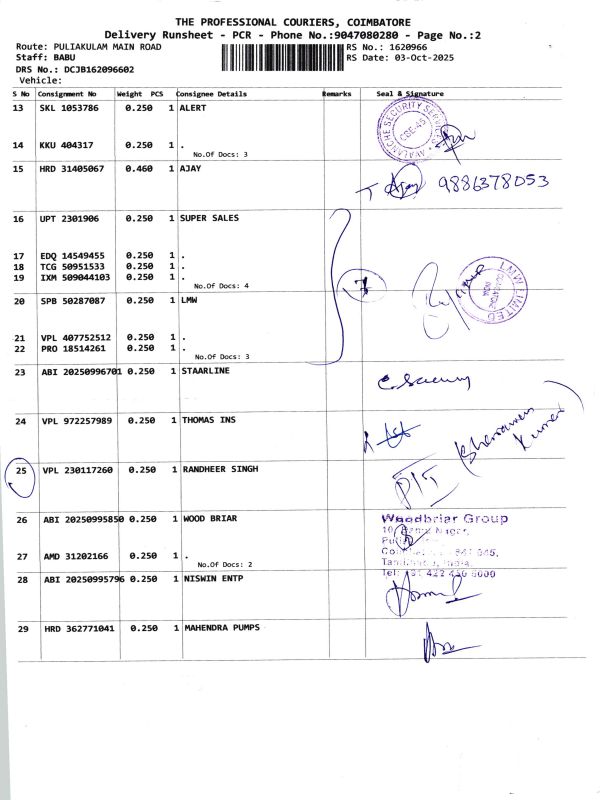 THE PROFESSIONAL COURIERS, COIMBATORE
Delivery Runsheet - PCR - Phone No.:9047080280 - Page No.:2
Route: PULIAKULAM MAIN ROAD RS No.: 1620966
Staff: BABU RS Date: 03-Oct-2025
DRS No.: DCJB162096602
Vehicle:
S No Consignment No Weight PCS Consignee Details Remarks Seal & Signature
13 SKL 1053786 0.250 1 ALERT
AVALANCHE SECURITY SERVICES
CBE-45
14 KKU 404317 0.250 1 .
No.Of Docs: 3
15 HRD 31405067 0.460 1 AJAY
Ajay 9886378053
16 UPT 2301906 0.250 1 SUPER SALES
17 EDQ 14549455 0.250 1 .
18 TCG 50951533 0.250 1 .
19 IXM 509044103 0.250 1 .
No.Of Docs: 4
7
LMW LIMITED
COIMBATORE
INDIA
20 SPB 50287087 0.250 1 LMW
21 VPL 407752512 0.250 1 .
22 PRO 18514261 0.250 1 .
No.Of Docs: 3
23 ABI 20250996701 0.250 1 STAARLINE
24 VPL 972257989 0.250 1 THOMAS INS
25 VPL 230117260 0.250 1 RANDHEER SINGH
Kumar
26 ABI 20250995850 0.250 1 WOOD BRIAR
Woodbriar Group
27 AMD 31202166 0.250 1 .
No.Of Docs: 2
India.
28 ABI 20250995796 0.250 1 NISWIN ENTP
29 HRD 362771041 0.250 1 MAHENDRA PUMPS